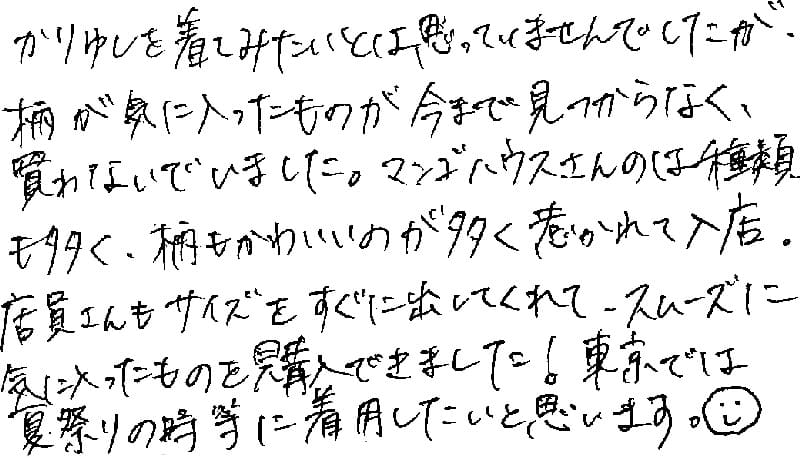 かりゆしを着てみたいとは思っていませんでしたが、
柄が気に入ったものが今まで見つからなく、
買わないでいました。マンゴハウスさんのは種類
も多く、柄もかわいいのが多く惹かれて入店。
店員さんもサイズをすぐに出してくれて、スムーズに
気に入ったものを購入できました！東京では
夏祭りの時等に着用したいと思います。